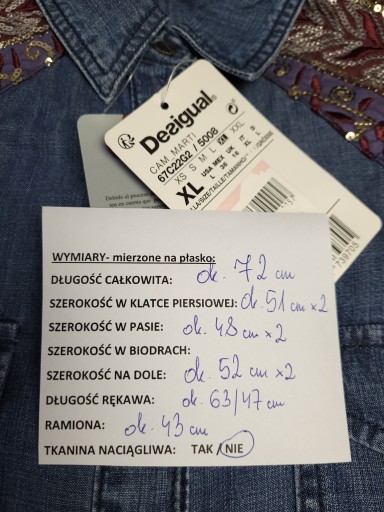 Desigual.
CAM. MARTI
67C22G2 / 5008
XS S M L XL XXL
XL
USA MEX UK IT D
L 36 16 XL L
WYMIARY- mierzone na płasko:
DŁUGOŚĆ CAŁKOWITA: ok. 72 cm
SZEROKOŚĆ W KLATCE PIERSIOWEJ: ok. 51 cm x2
SZEROKOŚĆ W PASIE: ok. 48 cm x2
SZEROKOŚĆ W BIODRACH:
SZEROKOŚĆ NA DOLE: ok. 52 cm x2
DŁUGOŚĆ RĘKAWA: ok. 63/47 cm
RAMIONA: ok. 43 cm
TKANINA NACIĄGLIWA: TAK / NIE